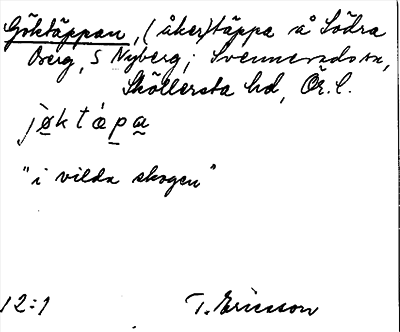 Göktäppan, (åker)täppa å Södra
Berg, S Nyberg, Svennevads sn,
Sköllersta hd, Ör. l.
jøktäpa
"i vilda skogen"
12:1 T. Ericsson